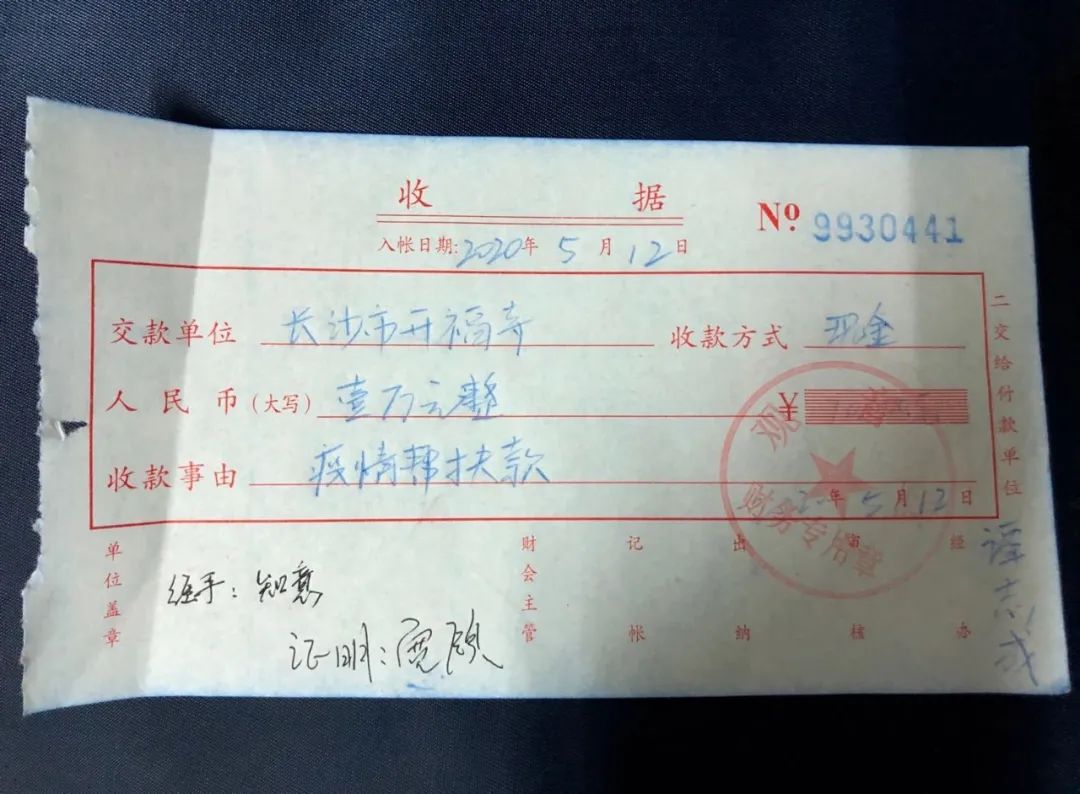 收 据
No. 9930441
入帐日期:2020年5月12日
交款单位 长沙市开福寺 收款方式 现金
人民币(大写) 壹万元整 ¥
收款事由 疫情帮扶款
2 年 5 月 12 日
财务专用章
二交给付款单位
单位盖章
财会主管
记帐
出纳
审核
经办
谭志成
经手:知意
证明: